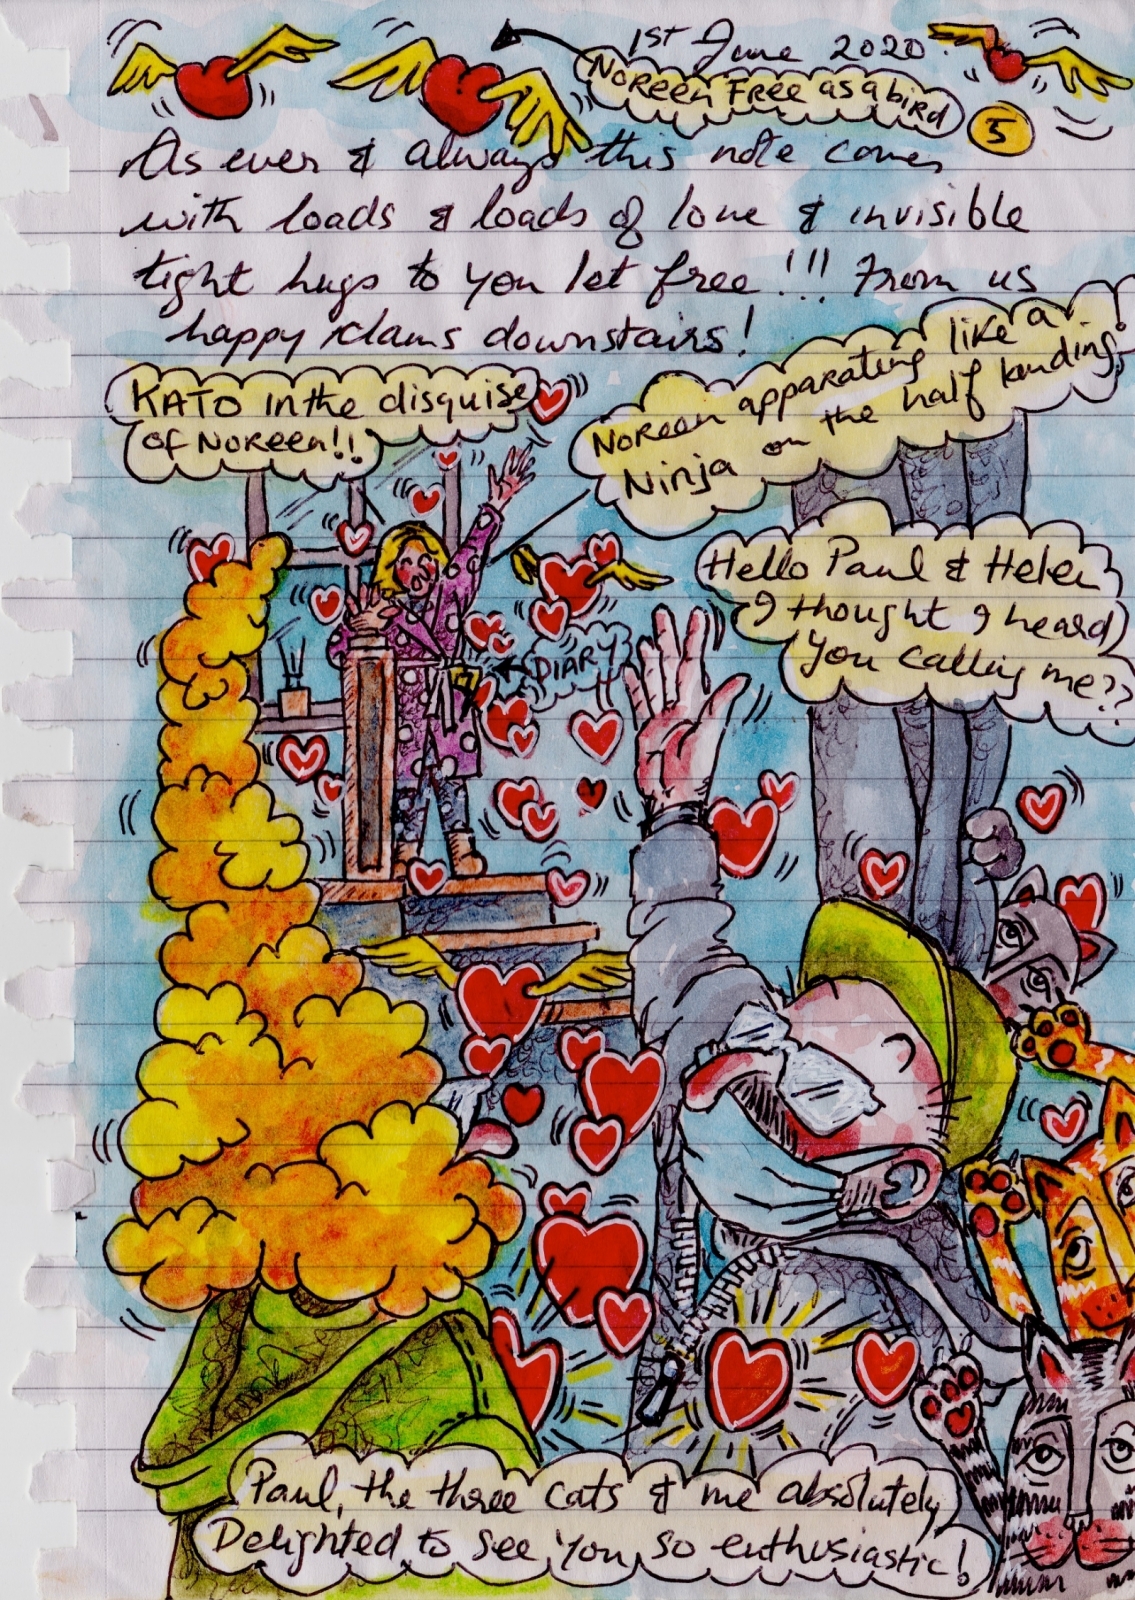 1st June 2020
Noreen Free as a bird
5
As ever & always this note comes
with loads & loads of love & invisible
tight hugs to you let free!!! From us
happy clams downstairs!
KATO in the disguise
of Noreen!!
Noreen apparating like a
Ninja on the half landing
Hello Paul & Helen
I thought I heard
you calling me??
DIARY
Paul, the three cats & me absolutely
Delighted to see you so enthusiastic!